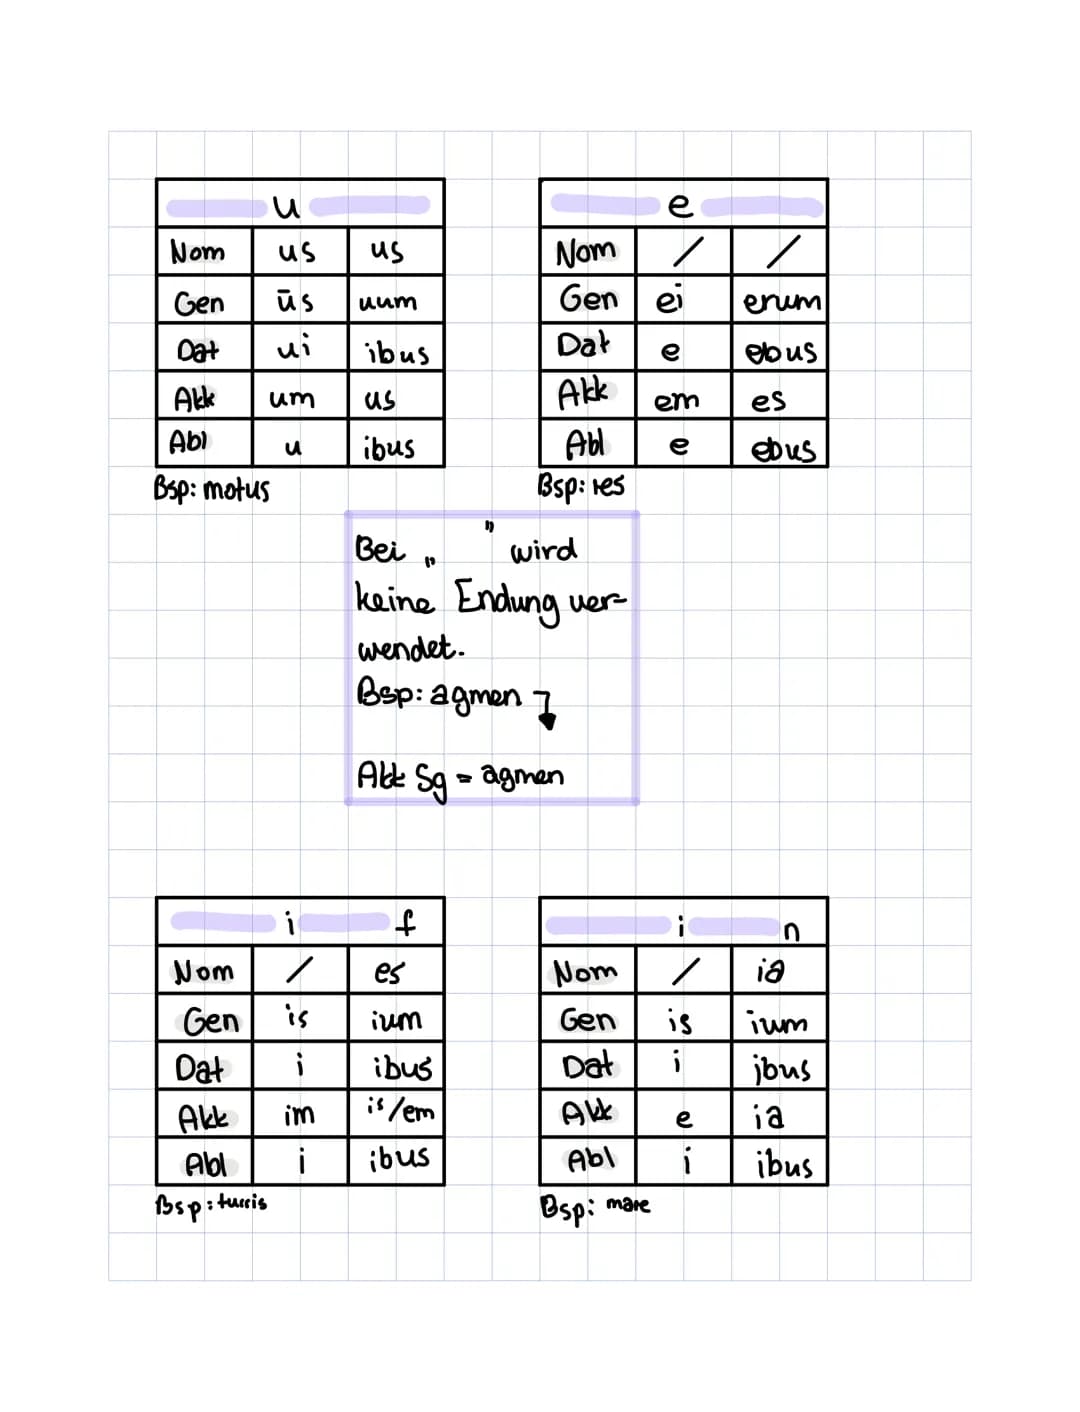 u
Nom us us
Gen ūs uum
Dat ui ibus
Akk um us
Abl u ibus
Bsp: motus
e
Nom / /
Gen ei erum
Dat e ebus
Akk em es
Abl e ebus
Bsp: res
Bei „ " wird
keine Endung ver-
wendet.
Bsp: agmen
Akk Sg = agmen
i f
Nom / es
Gen is ium
Dat i ibus
Akk im is/em
Abl i ibus
Bsp: turris
i n
Nom / ia
Gen is ium
Dat i ibus
Akk e ia
Abl i ibus
Bsp: mare